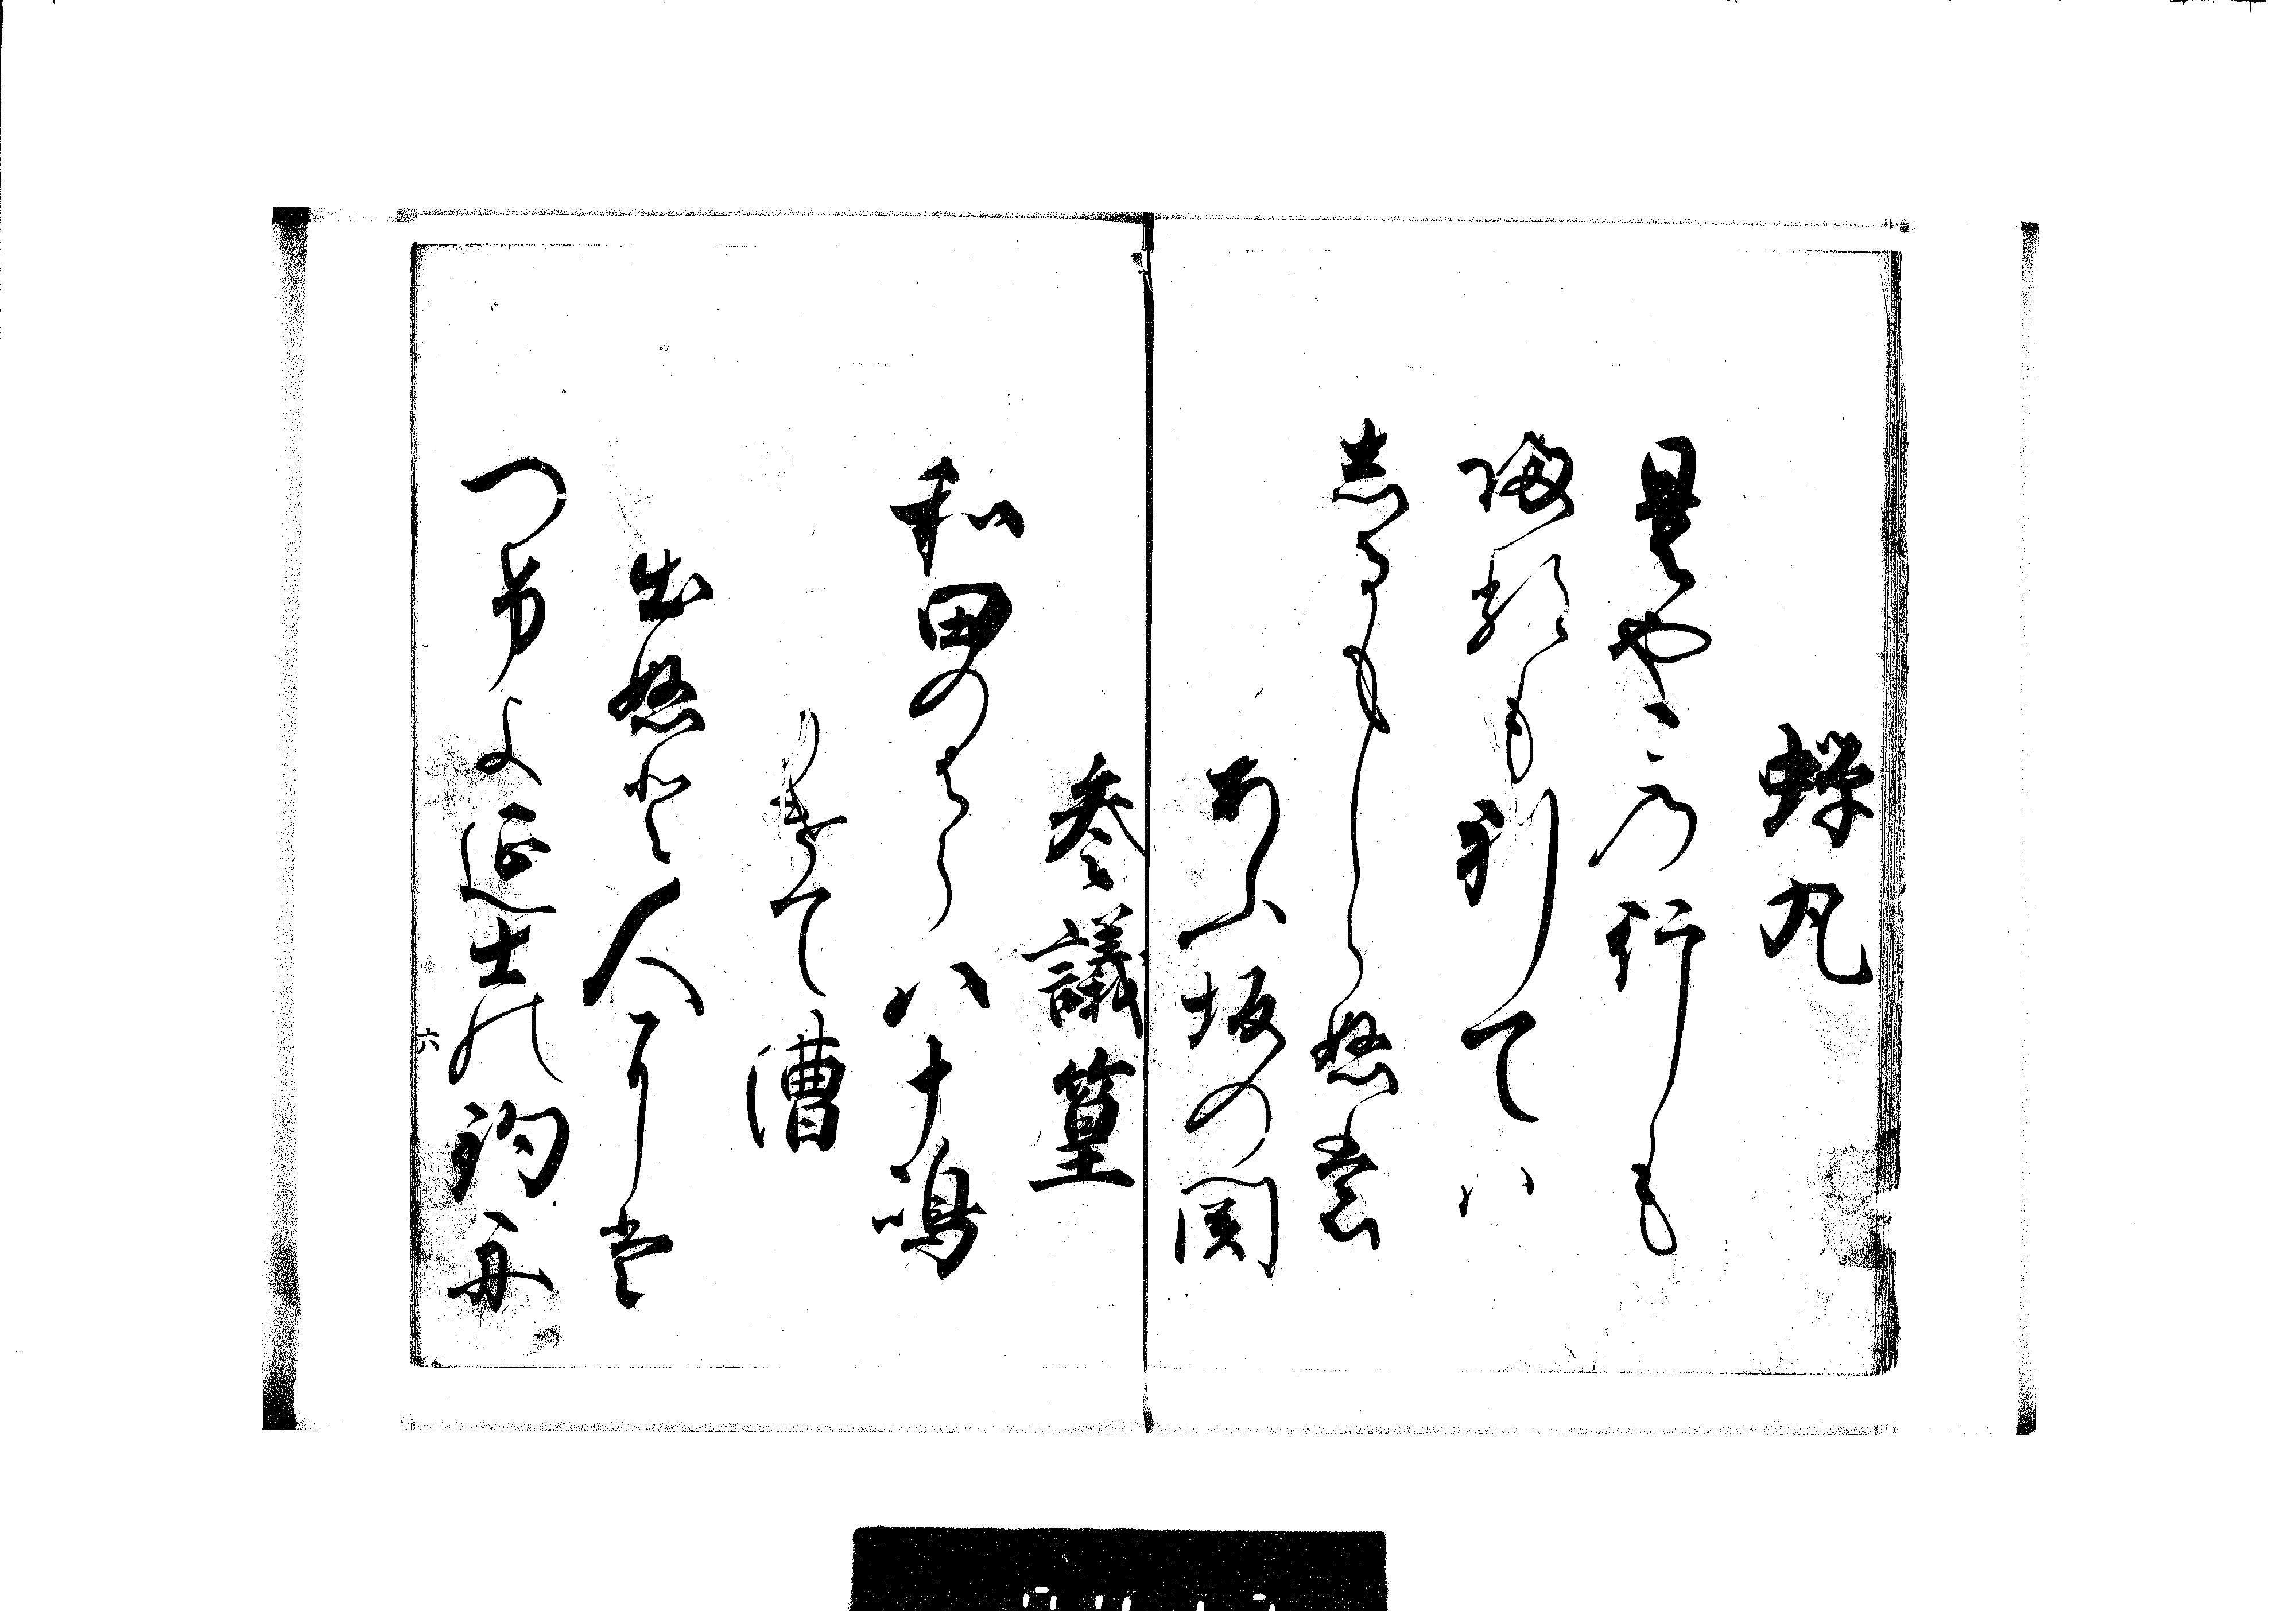 蝉丸
是やこの行も
帰るも別てハ
志るもしらぬも
あふ坂の関
参議篁
和田のはら八十嶋
かけて漕
出ぬと人には
つけよ海士の釣舟
六